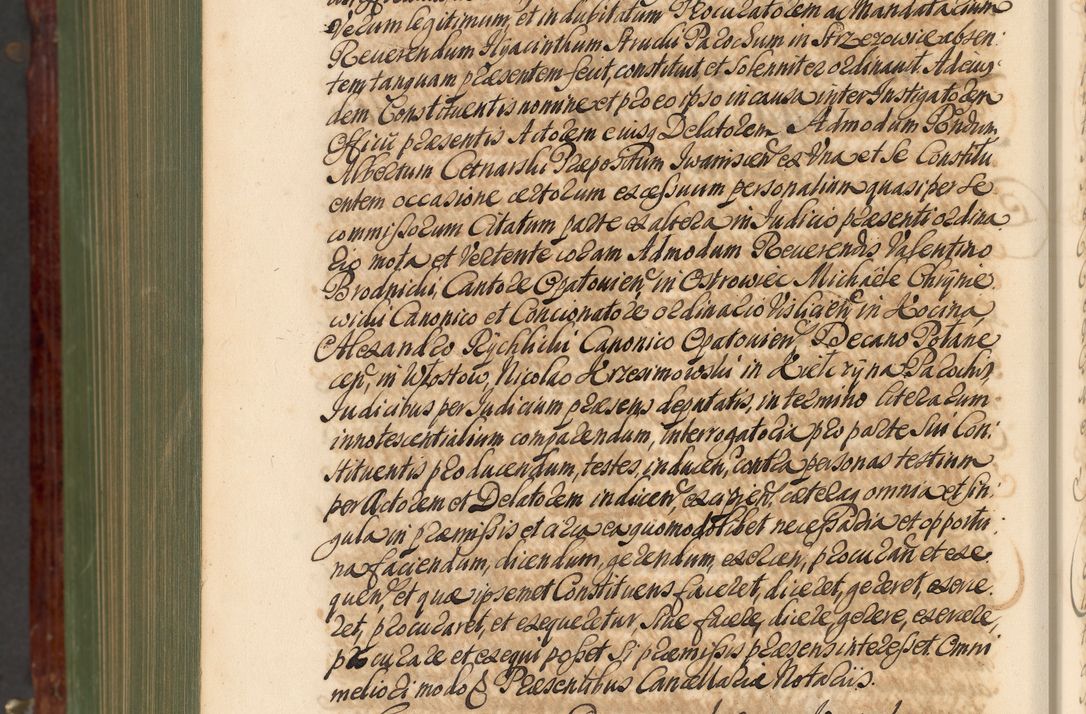 Verum legitimum, et indubitatum Procuratorem ac Mandatarium
Reverendum Hyacinthum Strucii Parochum in Strzezowice absen:
tem tanquam præsentem fecit, constituit, et Solenniter ordinavit. Ad ejus-
dem Constituentis nomine et pro eo ipso in causa inter Instigatorem
Officii præsentis Actorem ejusq Delatorem Admodum Rndum
Albertum Cetnarski Præpositum Iwanisien ex Una et Se Constitu
entem occasione certorum excessuum personalium quasi per Se
commissorum Citatum parte ex altera in Judicio præsenti ordina
rio mota et Vertente coram Admodum Reverendis Valentino
Brodnicki, Cantore Opatovien in Ostrowiec Michaële Chrynie
wicki Canonico et Concionatore ordinario Vislicien in Kocina,
Alexandro Rychlicki Canonico Opatovien Decano Połane
cen, in Włostow, Nicolao Krzesimowski in Kiełczyna Parochis,
Judicibus per Judicium præsens deputatis, in termino literarum
innotescentialium comparendum, interrogatoria pro parte Sui Con:
stituentis producendum, testes inducen, contra personas testium
per Actorem et Delatorem inducen excipien, cæteraq omnia et sin
gula in præmissis et circa ea quomodolibet necessaria et opportu
na faciendum, dicendum, gerendum, exercen, procuran et exe:
quen, et quæ ipsemet Constituens faceret, diceret, gereret, exerce:
ret, procuraret, et exequeretur, Sive facere, dicere, gerere, exercere,
procurare et exequi posset Si præmissis præsens interesset Omni
meliori modo Præsentibus Cancellariæ Notariis.